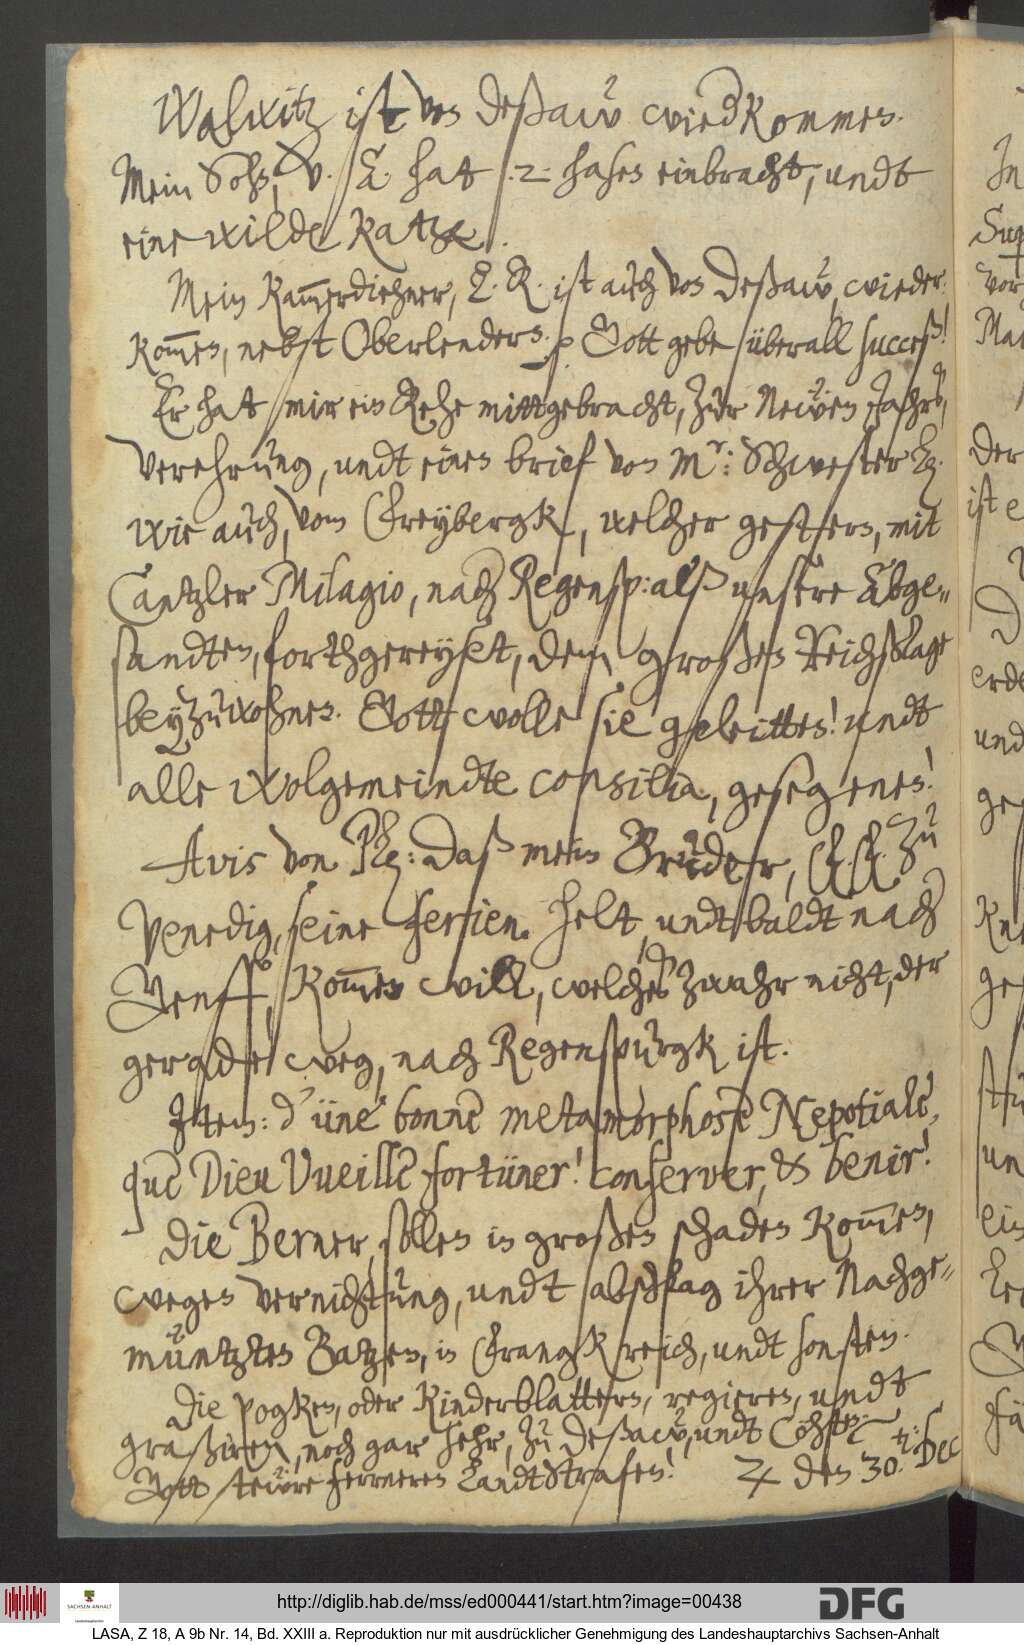 Walwitz ist von Deßaw wied kommen.
Mein Sohn, V. A. hatt .2. hasen einbracht, undt
eine wilde katze.
Mein Kammerdiehner, T. R. ist auch von Deßaw, wieder
kom̄en, nebst Oberlendern. p Gott gebe überall succeß!
Er hat mir ein Rehe mittgebracht, zur Newen Jahrs,
verehrung, undt einen brief von Mr: Schwester
wie auch, vom Freybergk, welcher gestern, mit
Cantzler Milagio, nach Regensp: alß unsere Abge„
sandten, forthgereyset, dem großen Reichßtage
beyzuwohnen. Gott wolle sie geleitten! undt
alle wolgemeindte consilia, gesegenen!
Avis von Plz: daß mein Bruder, F. F. zu
Venedig, seine ferien helt, undt baldt nach
Genff, kom̄en will, welches zwahr nicht, der
gerade weg, nach Regenspurgk ist.
Item: d'üne bonne metamorphose Nepotiale,
que Dieu Vueille fortüner! conserver, & benir!
Die Berner, sollen in großen schaden kom̄en,
wegen vernichtung, undt abschlag ihrer Nachge„
müntzten Batzen, in Frangkreich, undt sonsten.
Die pogken, oder Kinderblattern, regieren, undt
graßiren, noch gar sehr, zu Deßaw, undt Cöhten
Gott stewre ferrneren Landtstrafen! ♃ den 30. Dec
http://diglib.hab.de/mss/ed000441/start.htm?image=00438
SACHSEN-ANHALT
DFG
LASA, Z 18, A 9b Nr. 14, Bd. XXIII a. Reproduktion nur mit ausdrücklicher Genehmigung des Landeshauptarchivs Sachsen-Anhalt